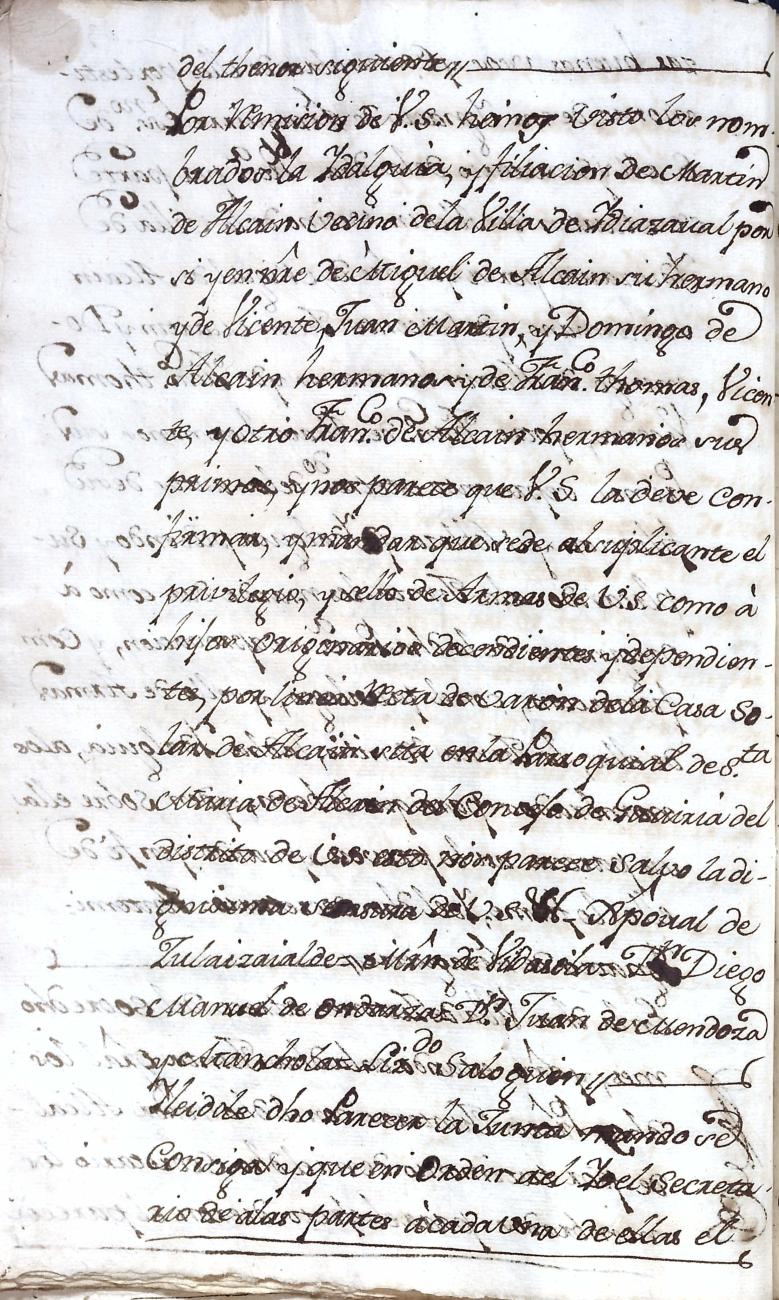 del thenor siguiente
Por Remision de V.S. hemos visto los nom-
brados la Ydalguia, y filiacion De Martin
de Alcain Vecino dela Villa de Ydiazaual por
si y en nre de Miguel de Alcain su hermano
y de Vicente, Juan Martin, y Domingo de
Alcain hermanos y de Franco. thomas, Vicen-
te, y otro Franco. de Alcain hermanos sus
primos, y nos parece que V.S. la deve con-
firmar, y mandar que se de al suplicante el
privilegio, y sello de Armas de V.S. como à
hijos Originarios decendientes y dependien-
tes, por linea Recta de varon dela Casa So-
lar de Alcain sita en la Parroquial de Sta
Maria de del Concejo de Gauiria del
distrito de V.S. esto nos parece salvo la di-
gnisima censura de V.S. de
Zulaizaialde Dn Diego
Manuel de Ondarza Dn Juan de Mendoza
y Lizdo Saloguen
Y leidole dho Parecer la Junta mando se
Consiga y que en Orden ael Yo el Secreta-
rio de alas partes àcada una de ellas el